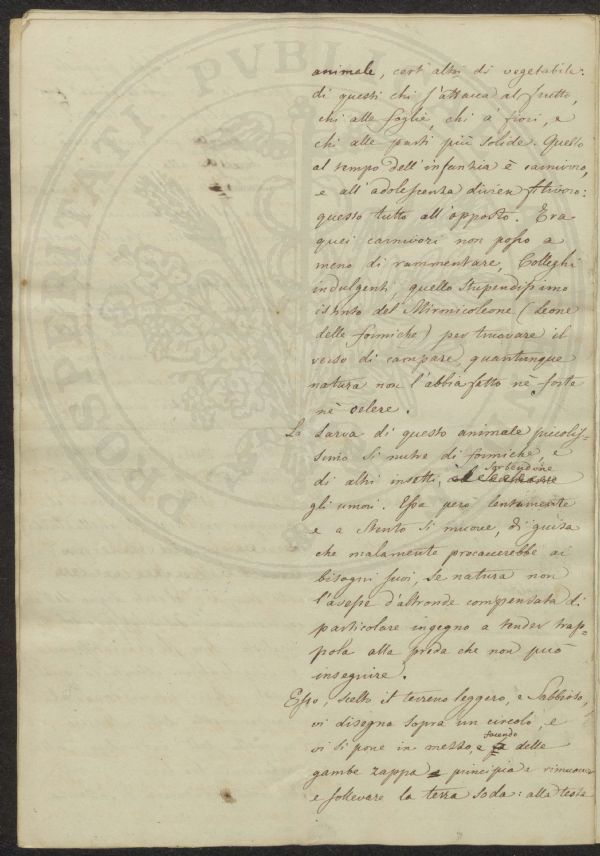 animale, cert'altri di vegetabile:
di questi chi s'attacca al frutto,
chi alle foglie, chi a' fiori, e
chi alle parti più solide. Questo
al tempo dell'infanzia è carnivoro,
e all'adolescenza divien fitivoro:
questo tutto all'opposto. Era
quei carnivori non posso a
meno di rammentare, Colleghi
indulgenti, quello stupendissimo
istinto del Mirmicoleone (Leone
delle formiche) per truovare il
verso di campare, quantunque
natura non l'abbia fatto nè forte
nè celere.
La Larva di questo animale piccolis-
simo si nutre di formiche, e
di altri insetti, sorbendone
gli umori. Essa però lentamente
e a stento si muove, di guisa
che malamente procaccerebbe ai
bisogni suoi, se natura non
l'avesse d'altronde compensata di
particolare ingegno a tender trap-
pola alla preda che non può
inseguire.
Esso, scelto il terreno leggero, e sabbioso,
vi disegna sopra un circolo, e
vi si pone in mezzo, e facendo delle
gambe zappa principia a rimuovere
e sollevare la terra soda: alla testa
PROSPERITATI PVBLI